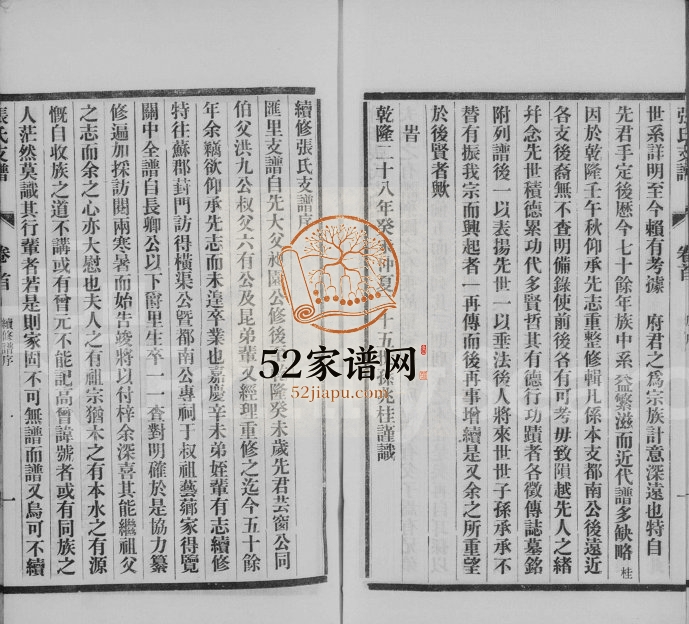 張氏支譜
卷首
世系詳明至今賴有考據 府君之爲宗族計意深遠也特自
先君手定後歷今七十餘年族中系益繁滋而近代譜多缺略桂
因於乾隆壬午秋仰承先志重整修輯凡係本支都南公後遠近
各支後裔無不查明備錄使前後各有可考毋致隕越先人之緒
幷念先世積德累功代多賢哲其有德行功蹟者各徵傳誌墓銘
附列譜後一以表揚先世一以垂法後人將來世世子孫承承不
替有振我宗而興起者一再傳而後再事增續是又余之所重望
於後賢者歟
旹
乾隆二十八年癸未仲夏 十五世 桂謹識
續修張氏支譜序
匯里支譜自先大父 園公修後 隆癸未歲先君芸窗公同
伯父洪九公叔父六有公及昆弟輩又經理重修之迄今五十餘
年余竊欲仰承先志而未遑卒業也嘉慶辛未弟姪輩有志續修
特往蘇郡葑門訪得橫渠公曁都南公專祠于叔祖藝薌家得覽
關中全譜自長卿公以下爵里生卒一一查對明確於是協力纂
修遍加採訪閱兩寒暑而始告竣將以付梓余深喜其能繼祖父
之志而余之心亦大慰也夫人之有祖宗猶木之有本水之有源
慨自收族之道不講或有曾元不能記高曾諱號者或有同族之
人茫然莫識其行輩者若是則家固不可無譜而譜又烏可不續
張氏支譜
卷首
續修譜序
一
52家谱网
52jiapu.com